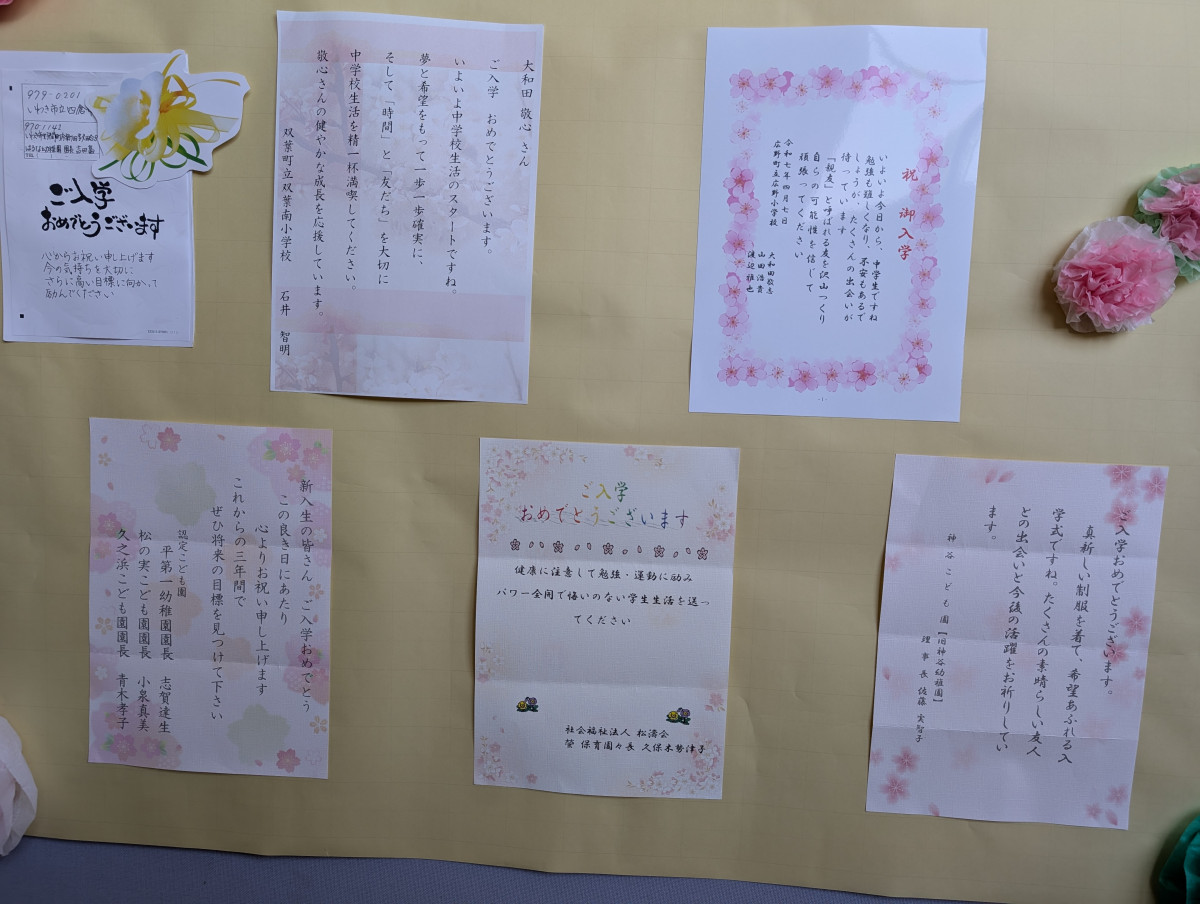 979-0201
いわき市立四倉
970-1142
ご入学
おめでとうございます
心からお祝い申し上げます
今の気持ちを大切に
さらに高い目標に向かって
励んでください
大和田 敬心 さん
ご入学 おめでとうございます。
いよいよ中学校生活のスタートですね。
夢と希望をもって一歩一歩確実に、
そして「時間」と「友だち」を大切に
中学校生活を精一杯満喫してください。
敬心さんの健やかな成長を応援しています。
双葉町立双葉南小学校 石井 智明
祝 御入学
いよいよ今日から、中学生ですね
勉強も難しくなり、不安もあるで
しょうが、たくさんの出会いが
待っています
「親友」と呼ばれる友を沢山つくり
自らの可能性を信じて
頑張ってください
令和七年四月七日
広野町立広野小学校
大和田敬志
山田浩貴
渡辺雅也
新入生の皆さん ご入学おめでとう
この良き日にあたり
心よりお祝い申し上げます
これからの三年間で
ぜひ将来の目標を見つけて下さい
認定こども園
平第一幼稚園園長 志賀達生
松の実こども園園長 小泉真美
久之浜こども園園長 青木孝子
ご入学
おめでとうございます
健康に注意して勉強・運動に励み
パワー全開で悔いのない学生生活を送っ
てください
社会福祉法人 松濤会
螢 保育園々長 久保木勢津子
ご入学おめでとうございます。
真新しい制服を着て、希望あふれる入
学式ですね。たくさんの素晴らしい友人
との出会いと今後の活躍をお祈りしてい
ます。
神谷こども園【旧神谷幼稚園】
理事長 佐藤 実智子